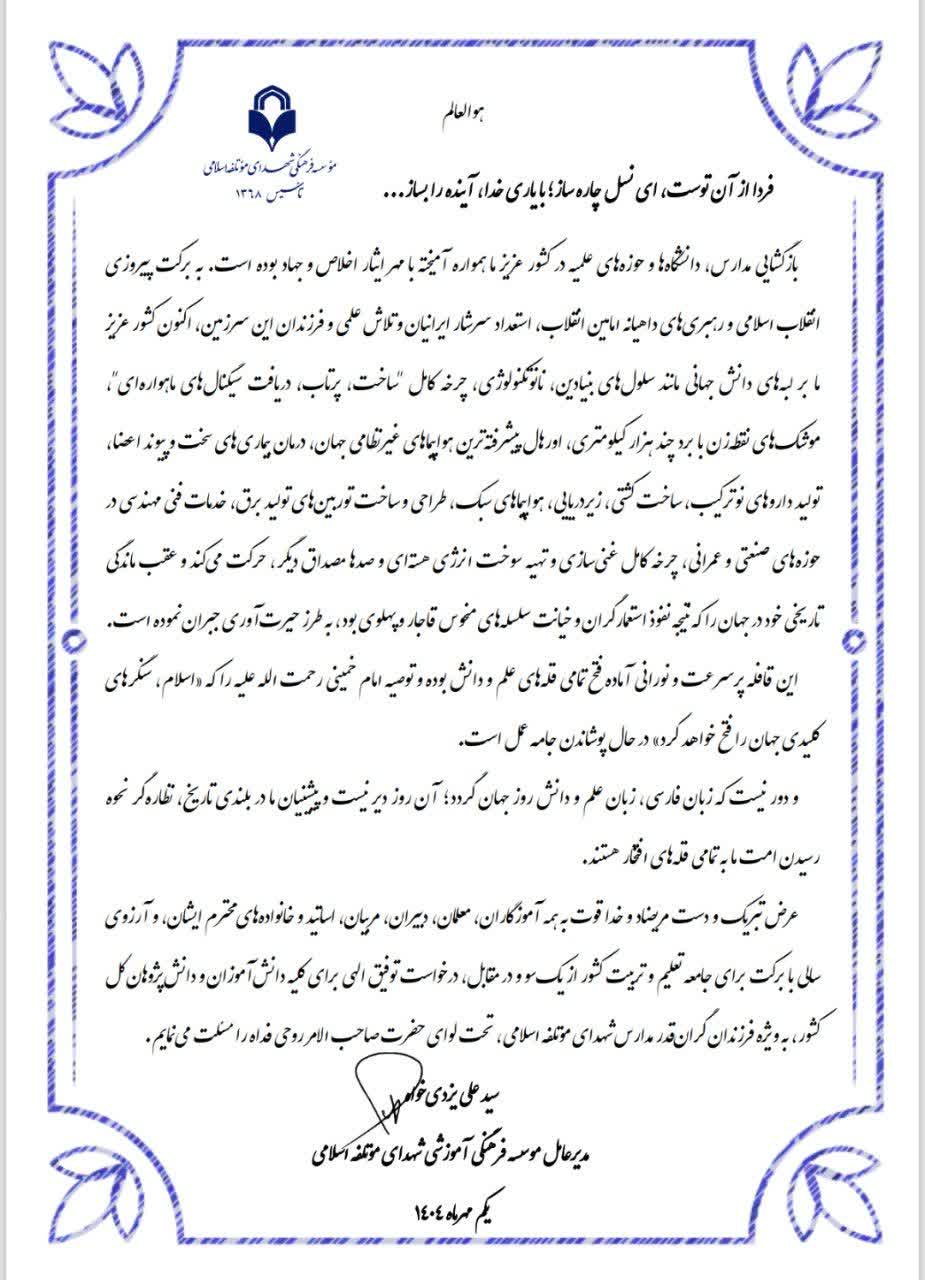 هوالعالم
موسسه فرهنگی شهدای مؤتلفه اسلامی
تاسیس ۱۳۶۸
فردا از آن توست، ای نسل چاره ساز؛ با یاری خدا، آینده را بساز...
بازگشایی مدارس، دانشگاه‌ها و حوزه‌های علمیه در کشور عزیز ما همواره آمیخته با مهر ایثار اخلاص و جهاد بوده است. به برکت پیروزی
انقلاب اسلامی و رهبری‌های داهیانه امامین انقلاب، استعداد سرشار ایرانیان و تلاش علمی و فرزندان این سرزمین، اکنون کشور عزیز
ما بر لبه‌های دانش جهانی مانند سلول‌های بنیادین، نانوتکنولوژی، چرخه کامل "ساخت، پرتاب، دریافت سیگنال‌های ماهواره‌ای"،
موشک‌های نقطه‌زن با برد چند هزار کیلومتری، اورهال پیشرفته‌ترین هواپیماهای غیرنظامی جهان، درمان بیماری‌های سخت و پیوند اعضا،
تولید داروهای نوترکیب، ساخت کشتی، زیردریایی، هواپیماهای سبک، طراحی و ساخت توربین‌های تولید برق، خدمات فنی مهندسی در
حوزه‌های صنعتی و عمرانی، چرخه کامل غنی‌سازی و تهیه سوخت انرژی هسته‌ای و صدها مصداق دیگر، حرکت می‌کند و عقب ماندگی
تاریخی خود در جهان را که نتیجه نفوذ استعمارگران و خیانت سلسله‌های منحوس قاجار و پهلوی بود، به طرز حیرت‌آوری جبران نموده است.
این قافله پرسرعت و نورانی آماده فتح تمامی قله‌های علم و دانش بوده و توصیه امام خمینی رحمت الله علیه را که «اسلام، سنگرهای
کلیدی جهان را فتح خواهد کرد» در حال پوشاندن جامه عمل است.
و دور نیست که زبان فارسی، زبان علم و دانش روز جهان گردد؛ آن روز دیر نیست و پیشینیان ما در بلندی تاریخ، نظاره‌گر نحوه
رسیدن امت ما به تمامی قله‌های افتخار هستند.
عرض تبریک و دست مریضاد و خدا قوت به همه آموزگاران، معلمان، دبیران، مربیان، اساتید و خانواده‌های محترم ایشان، و آرزوی
سالی با برکت برای جامعه تعلیم و تربیت کشور از یک سو و در مقابل، درخواست توفیق الهی برای کلیه دانش‌آموزان و دانش‌پژوهان کل
کشور، به ویژه فرزندان گران‌قدر مدارس شهدای مؤتلفه اسلامی، تحت لوای حضرت صاحب الامر روحی فداه را مسئلت می‌نمایم.
سید علی یزدی‌خواه
مدیرعامل موسسه فرهنگی آموزشی شهدای مؤتلفه اسلامی
یکم مهرماه ۱۴۰۴